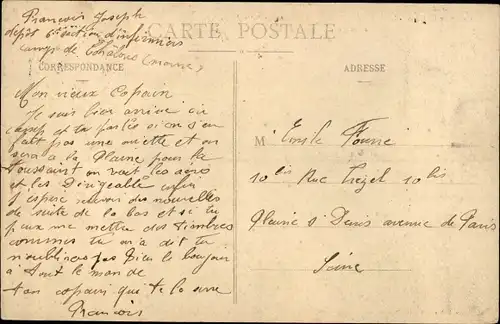 François Joseph
depot 6e section d'infirmiers
camp de Châlons (marne)
CARTE POSTALE
CORRESPONDANCE
ADRESSE
Mon vieux Copain
Je suis bien arrivé au
camp et tu parles si on s'en
fait pas une miette et on
sera à la Plaine pour la
Toussaint on voit les aero
et les Dirigeable enfin
J espere recevoir des nouvelles
de suite de la bas et si tu
peux me mettre des timbres
commes tu m'a dit tu
n'oublieras pas Bien le bonjour
à tout le mon de
ton copain que te la serre
Francois
M Emile Fourre
10 bis Rue Trezel 10 bis
Plaine St Denis avenue de Paris
Seine